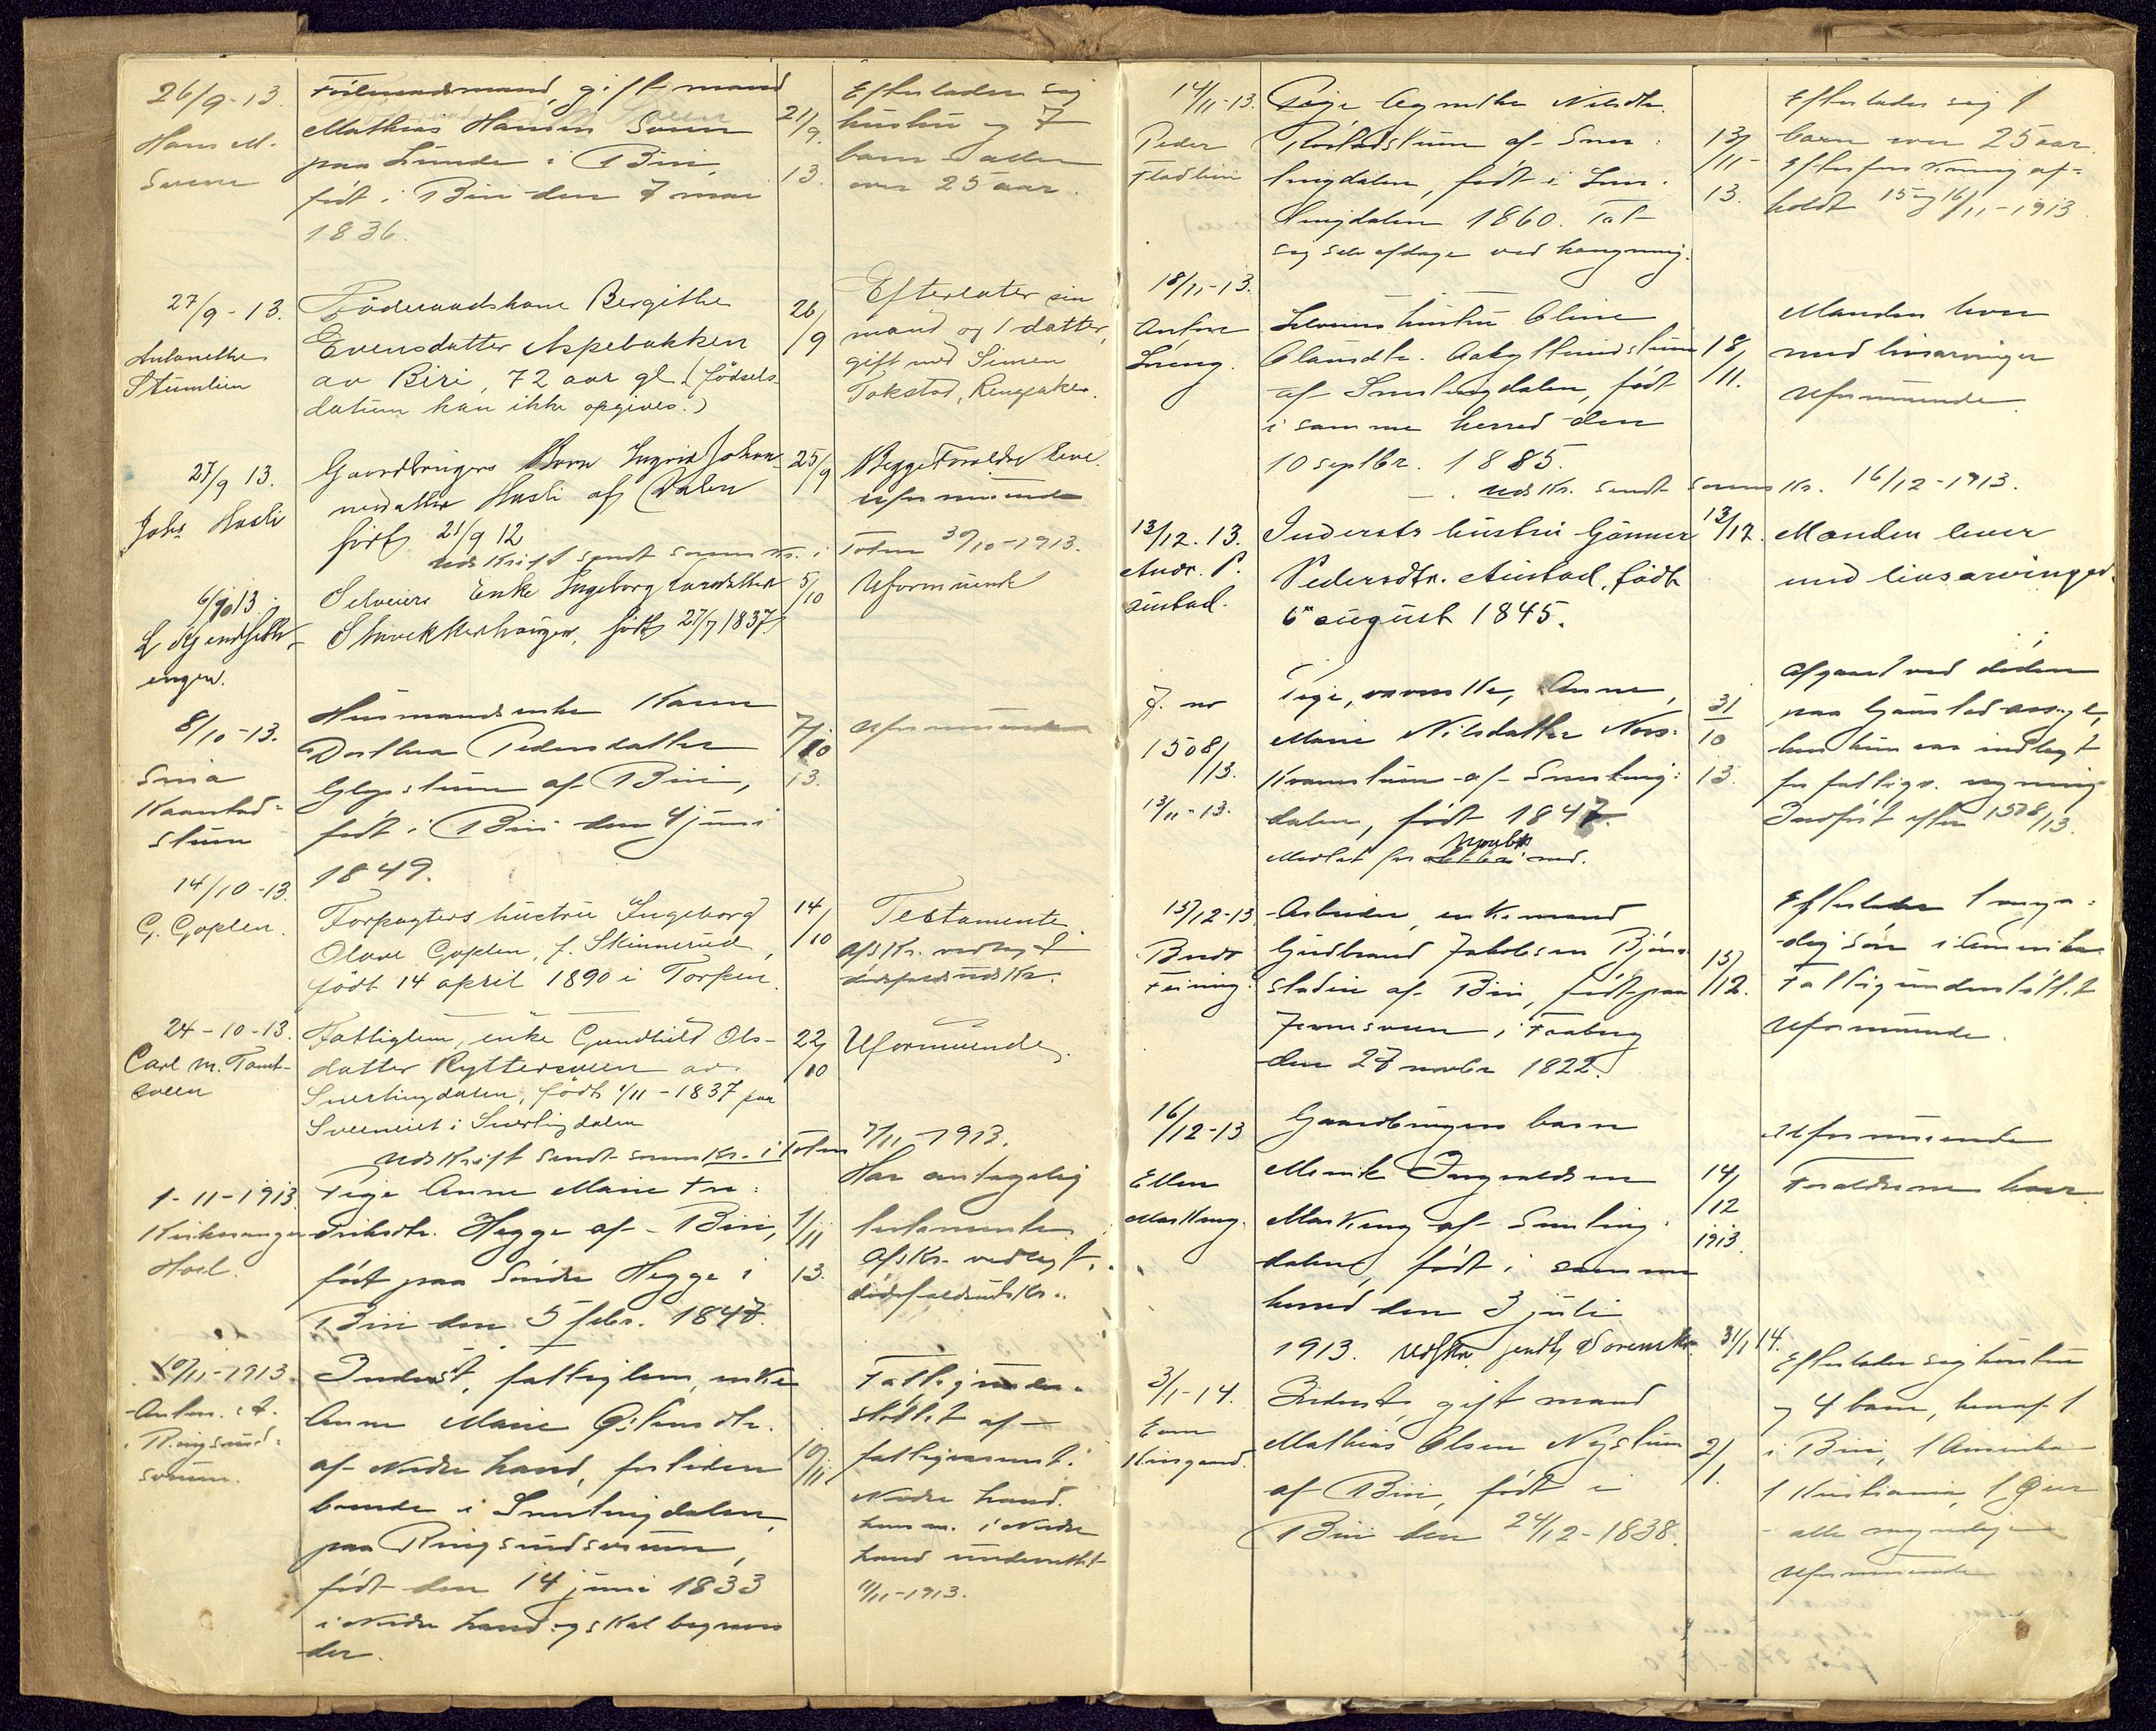 26/9-13.
Hans M.
Sveen
Föderaadsmand, gift mand
Mathias Hansen Sveen
paa Lunde i Biri,
født i Biri den 7 mai
1836.
21/9.
13.
Efterlader sig
hustru og 7
barn alle
over 25 aar.
27/9-13.
Antonethe
Stumlien
Föderaadskone Bergithe
Evensdatter Aspebakken
av Biri, 72 aar gl. (fødsels-
datum kan ikke opgives.)
26/9
Efterlater sin
mand og 1 datter,
gift med Simen
Tokstad, Ringsaker.
27/9 13.
Johs Hasli
Gaardbrugers Barn Ingrid Johan-
nesdatter Hasli af Dalen
født 21/9 12
25/9
Begge Foreldre leve.
Uformuende
Udskrift sendt sorenskr. i Toten 30/10-1913.
6/10 13.
engen.
Selveiers Enke Ingeborg Larsdatter
født 27/7 1837
5/10
Uformuende
8/10-13.
Husmandsenke Karen
Dorthea Pedersdatter
Glæstuen af Biri,
født i Biri den 4 juni
1849.
7/10
13.
Uformuende
14/10-13.
G. Goplen.
Forpagters hustru Ingeborg
Olave Goplen, f. Skinnerud,
født 14 april 1890 i Torpen.
14/10
Testamente
afskr. vedlagt
dødsfaldsudskr.
24-10-13.
Carl M. Tomt-
sveen
Fattiglem, enke Gundhild Ols-
datter Ryttersveen av
Snertingdalen, født 1/11-1837 paa
Sveeneiet i Snertingdalen
22/10
Uformuende.
Udskrift sendt sorenskr. i Toten 7/11-1913.
1-11-1913
Kirkesanger
Hoel.
Pige Anne Marie Fre-
driksdtr. Hegge af Biri,
født paa Søndre Hegge i
Biri den 5 febr. 1847.
1/11
13.
Har antagelig
testamente
Afskr. vedlagt
dødsfaldsudskr.
10/11-1913
Anton A.
Ringsrud-
sveen.
Inderst, fattiglem, enke
Anne Marie Østensdtr.
af Nordre Land, for tiden
boende i Snertingdalen,
paa Ringsrudsveen,
født den 14 juni 1833
i Nordre Land og skal begraves
der.
10/11
Fattigunder-
støttet af
fattigvæsenet i
Nordre Land.
Lensm. i Nordre
Land underrettet
11/11-1913.
14/11-13.
Peder
Pige Agnethe Nilsdtr.
af Sner-
tingdalen, født i Sner-
tingdalen 1860. Tat
sig selv afdage ved hængning.
13/11-
13.
Efterlader sig 1
barn over 25 aar.
Efterforskning af-
holdt 15 og 16/11-1913.
18/11-13.
Anton
Selveiers hustru Oline
af Snertingdalen, født
i samme herred den
10 septbr. 1885.
18/11.
Manden lever
med livsarvinger
Uformuende.
Udskr. sendt sorenskr. 16/12-1913.
13/12.13.
Andr. P.
Austad.
Indersts hustru Gunner
Pedersdtr. Austad, født
6 august 1845.
13/12.
Manden lever
med livsarvinger.
J. no
1508/13.
13/11-13.
Pige, Anne
Marie Nilsdatter Nors-
af Snerting-
dalen, født 1847.
Meldt for novbr md.
31/10
13.
Afgaaet ved døden
paa Gaustad asyl,
hvor hun var indlagt
for fattigv. regning
Indført efter 1508/13.
15/12-13
Arbeider, enkemand
Gudbrand Jakobsen Bjørn-
stadeie af Biri, født paa
i Faaberg
den 27 novbr 1822.
15/12.
Efterlader 1 myn-
dig søn i Amerika
Fattigunderstøttet
Uformuende.
16/12-13
Ellen
Markeng.
Gaardbrugers barn
Menik Ingvaldsen
Markeng af Snerting-
dalen, født i samme
herred den 3 juli
1913. Udskr. sendt Sorenskr. 31/1 14.
14/12
1913.
Uformuende
Foreldrene lever.
3/1-14.
Even
Inderst, gift mand
Mathias Olsen Nystuen
af Biri, født i
Biri den 24/12-1838.
2/1.
Efterlader sig hustru
og 4 barn, hvoraf 1
i Biri, 1 Amerika
1 Kristiania, 1 Gjøv
- alle myndige
Uformuende